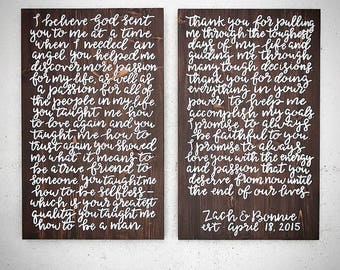 I believe God sent
you to me at a time
when I needed an
angel you helped me
discover more passion
for my life, as well as
a passion for all of
the people in my life.
you taught me how
to love again and you
taught me how to
trust again you showed
me what it means to
be a true friend to
someone you taught me
how to be selfless—
which is your greatest
quality you taught me
how to be a man.
thank you for pulling
me through the toughest
days of my life and
guiding me through
many tough decisions
thank you for doing
everything in your
power to help me
accomplish my goals
I promise to always
be faithful to you
I promise to always
love you with the energy
and passion that you
deserve from now until
the end of our lives—
Zach & Bonnie
est. april 18, 2015